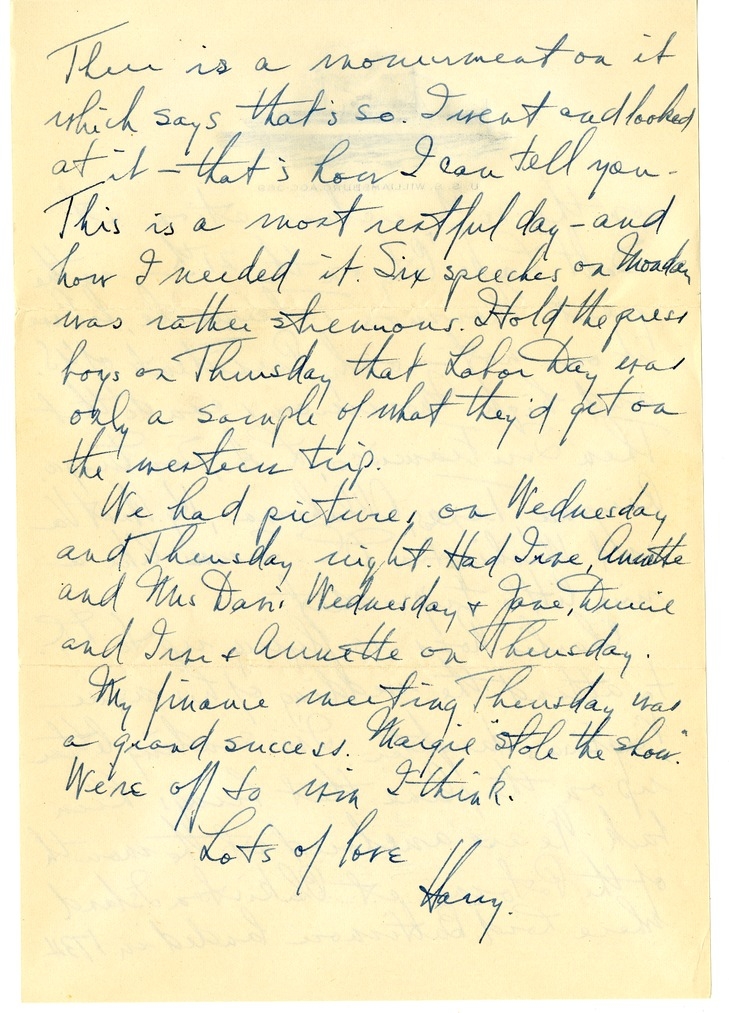 There is a monument on it
which says that's so. I went and looked
at it – that's how I can tell you.
This is a most restful day – and
how I needed it. Six speeches on Monday
was rather strenuous. I told the press
boys on Thursday that Labor Day was
only a sample of what they'd get on
the western trip.
We had pictures on Wednesday
and Thursday night. Had Irve, Annette
and Mrs Davis Wednesday & Jane,
and Irve & Annette on Thursday.
My finance meeting Thursday was
a grand success. Margie "stole the show."
We're off to win I think.
Lots of love
Harry.